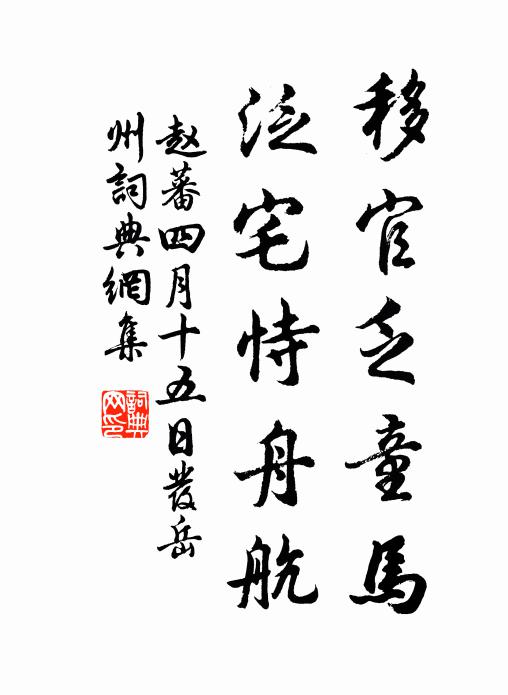 移官乏童馬
泛宅恃舟航
赵蕃四月十五日发岳
州詞典網集
詞典网印